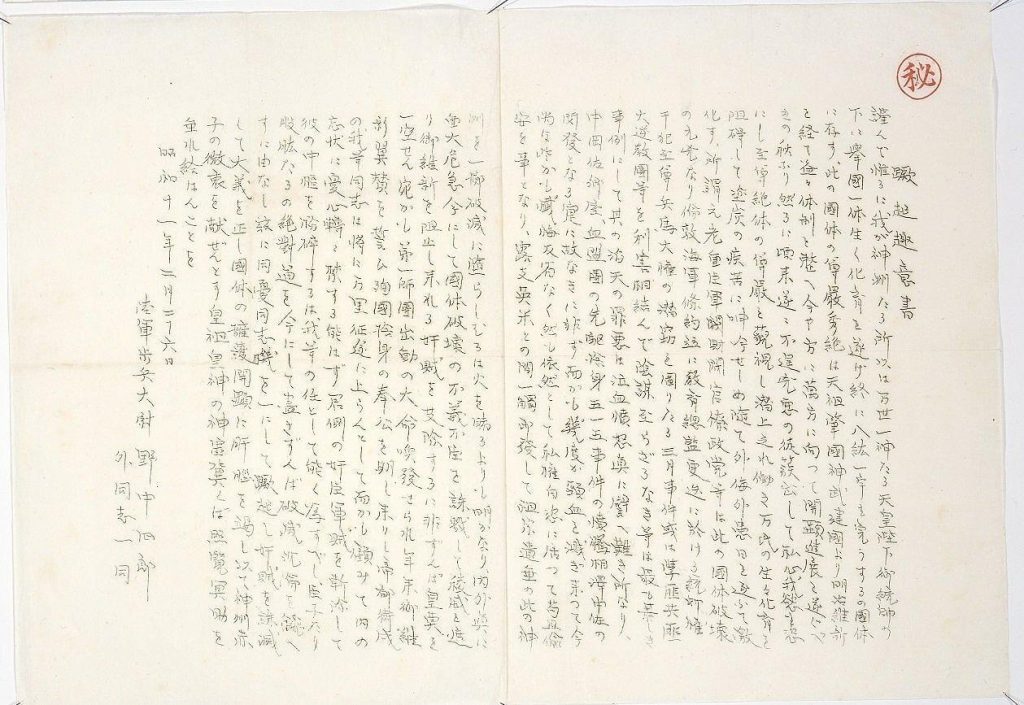 秘
蹶起趣意書
謹んで惟るに我が神洲たる所以は万世一神たる天皇陛下御統帥の
下に挙國一体生々化育を遂げ終に八紘一宇を完うするの國体
に存す、此の國体の尊厳秀絶は天祖肇國神武建國より明治維新
を経て益々体制を整へ今や方に萬方に向つて開顕進展を遂ぐべ
きの秋なり然るに頃来遂に不逞兇悪の徒簇出して私心我慾を恣
にし至尊絶体の尊厳を藐視し僭上之れ働き万民の生々化育を
阻碍して塗炭の疾苦に呻吟せしめ随て外侮外患日を逐ふて激
化す、所謂元老重臣軍閥財閥官僚政党等は此の國体破壊
の元兇なり倫敦海軍條約並に教育総監更迭に於ける統帥権
干犯至尊兵馬大権の僭窃を圖りたる三月事件或は學匪共匪
大逆教團等と利害相結んで陰謀至らざるなき等は最も著しき
事例にして其の滔天の罪悪は泣血憤怒真に譬へ難き所なり、
中岡佐郷屋血盟團の先駆捨身五一五事件の噴騰相澤中佐の
閃發となる寔に故なきに非ず而かも幾度か頸血を濺ぎ来つて今
尚些かも懺悔反省なく然も依然として私権自恣に居つて苟且偸
安を事となり、露支英米との間一觸即發して祖宗遺垂の此の神
洲を一擲破滅に堕らしむるは火を睹るよりも明かなり内外真に
重大危急今にして國体破壊の不義不臣を誅戮して稜威を遮
り御維新を阻止し来れる奸賊を芟除するに非ずんば皇謨を
一空せん宛かも第一師團出動の大命喚發せられ年来御維
新翼賛を誓ひ殉國捨身の奉公を期し来りし帝都衛戍
の我等同志は将に万里征途に上らんとして而かも顧みて内の
忘状に憂心轉々禁ずる能はず君側の奸臣軍賊を斬除して
彼の中樞を粉砕するは我等の任として能く為すべし臣子たり
股肱たるの絶對道を今にして盡さずんば破滅沈淪を飜へ
すに由なし茲に同憂同志機を一にして蹶起し奸賊を誅滅
して大義を正し國体の擁護開顕に肝脳を竭し以て神州赤
子の微衷を献ぜんとす皇祖皇神の神霊冀くば照覧冥助を
垂れ給はんことを
昭和十一年二月二十六日
陸軍歩兵大尉　野中四郎
外同志一同